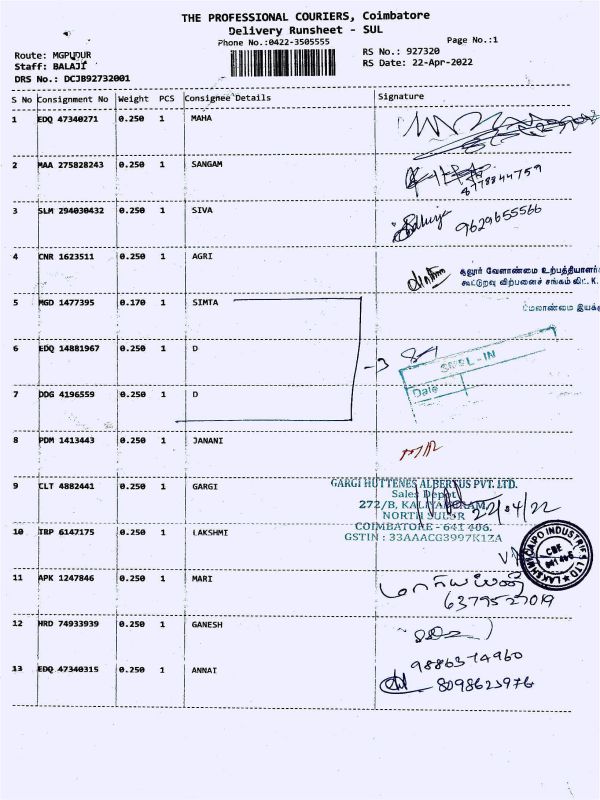 THE PROFESSIONAL COURIERS, Coimbatore
Delivery Runsheet - SUL
Phone No.:0422-3505555
Page No.:1
Route: MGPUDUR
RS No.: 927320
Staff: BALAJI
RS Date: 22-Apr-2022
DRS No.: DCJB92732001
S No Consignment No Weight PCS Consignee Details Signature
1 EDQ 47340271 0.250 1 MAHA
2 MAA 275828243 0.250 1 SANGAM
8778844759
3 SLM 294030432 0.250 1 SIVA
9629655566
4 CNR 1623511 0.250 1 AGRI
சூலூர் வேளாண்மை உற்பத்தியாளர்
கூட்டுறவு விற்பனைச் சங்கம் லிட். K.
5 MGD 1477395 0.170 1 SIMTA
மேலாண்மை இயக்கு
6 EDQ 14881967 0.250 1 D
3
SMEL-IN
Date
7 DDG 4196559 0.250 1 D
8 PDM 1413443 0.250 1 JANANI
9 CLT 4882441 0.250 1 GARGI
GARGI HUTTENES ALBERTUS PVT. LTD.
Sales Depot
272/B, KALIYAPURAM,
NORTH SULUR
COIMBATORE - 641 406.
GSTIN : 33AAACG3997K1ZA
22/04/22
10 TRP 6147175 0.250 1 LAKSHMI
LAKSHMI CAIPO INDUSTRIES LTD
CBE
641 406
11 APK 1247846 0.250 1 MARI
மாரியப்பன்
6379527019
12 HRD 74933939 0.250 1 GANESH
9886374960
13 EDQ 47340315 0.250 1 ANNAI
8098623976